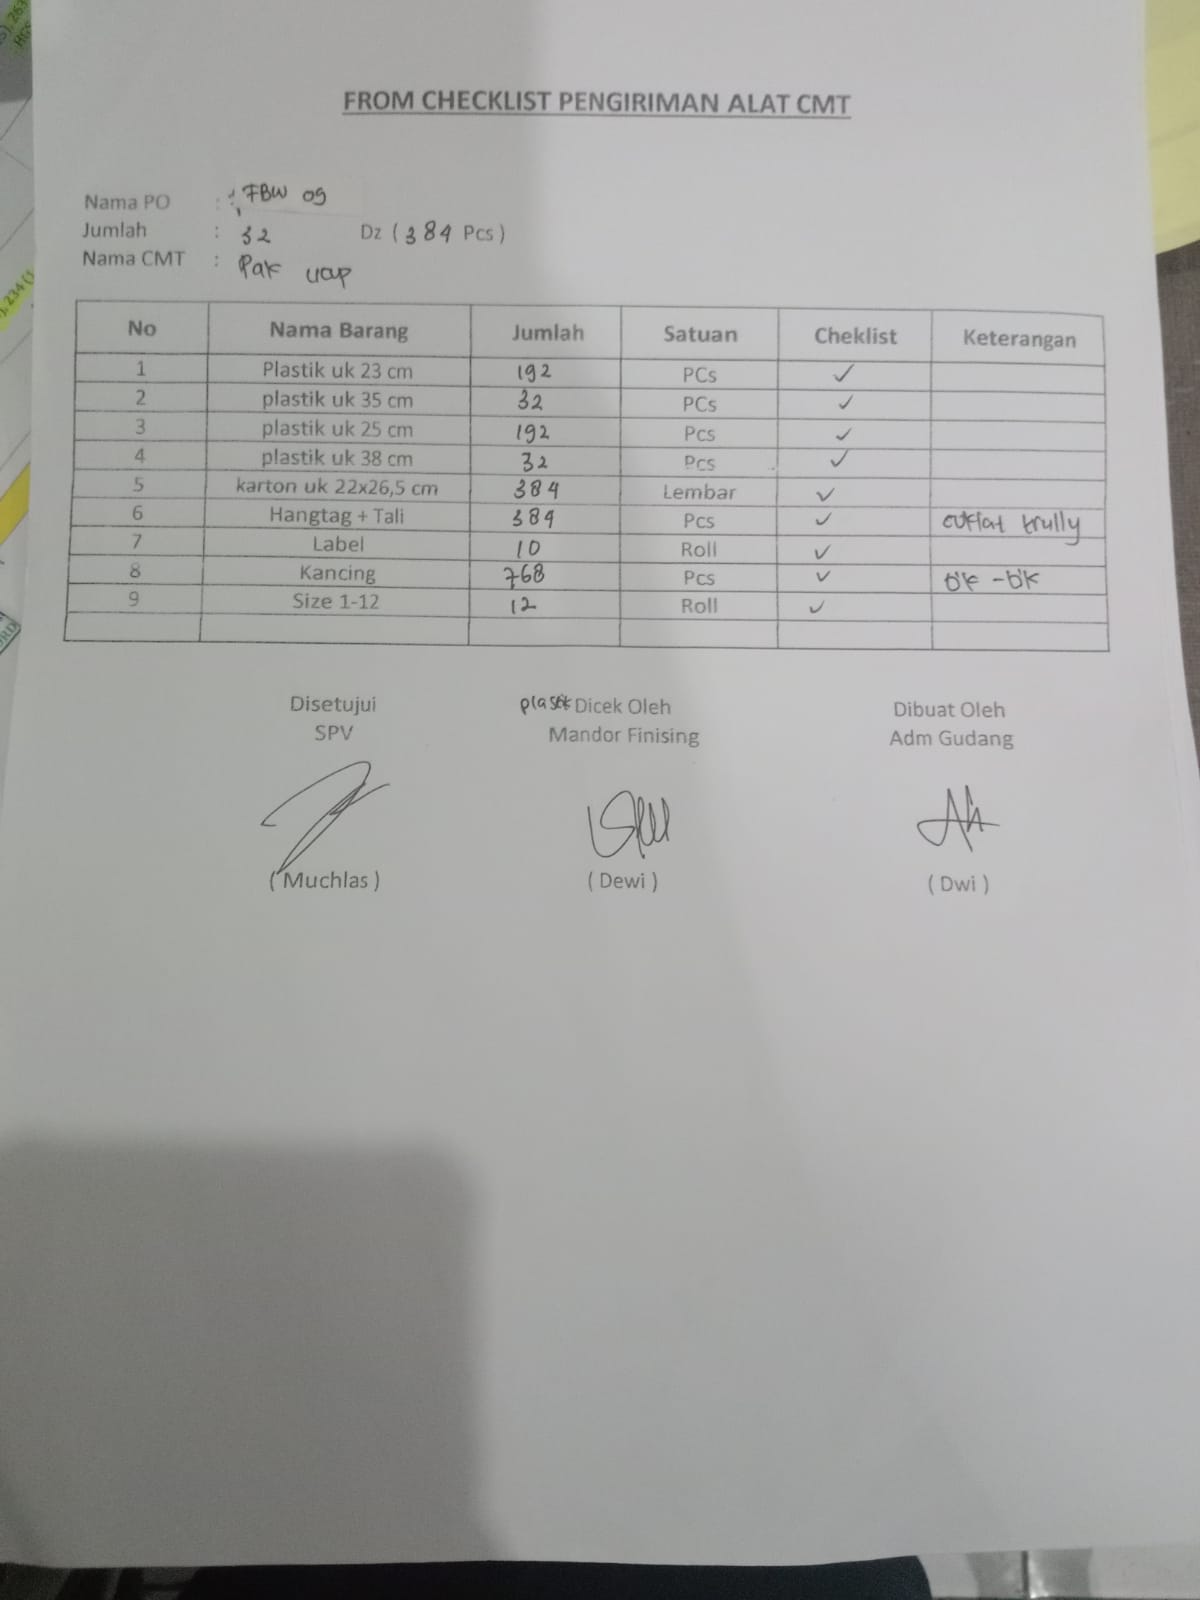 FROM CHECKLIST PENGIRIMAN ALAT CMT
Nama PO : FBW 09
Jumlah : 32 Dz ( 384 Pcs )
Nama CMT : Pak
No Nama Barang Jumlah Satuan Cheklist Keterangan
1 Plastik uk 23 cm 192 PCs ✓
2 plastik uk 35 cm 32 PCs ✓
3 plastik uk 25 cm 192 Pcs ✓
4 plastik uk 38 cm 32 Pcs ✓
5 karton uk 22x26,5 cm 384 Lembar ✓
6 Hangtag + Tali 384 Pcs ✓ trully
7 Label 10 Roll ✓
8 Kancing 768 Pcs ✓ b'k - b'k
9 Size 1-12 12 Roll ✓
Disetujui plastik Dicek Oleh Dibuat Oleh
SPV Mandor Finising Adm Gudang
( Muchlas ) ( Dewi ) ( Dwi )